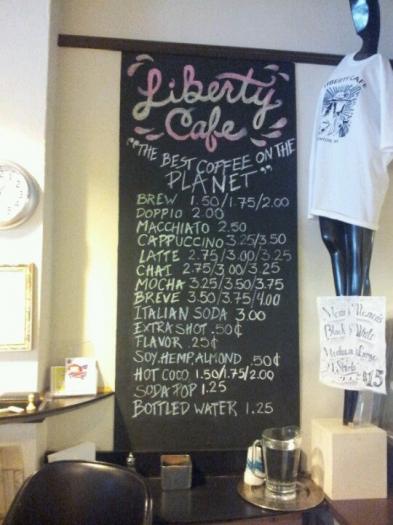 Liberty
Cafe
"THE BEST COFFEE ON THE
PLANET"
BREW 1.50/1.75/2.00
DOPPIO 2.00
MACCHIATO 2.50
CAPPUCCINO 3.25/3.50
LATTE 2.75/3.00/3.25
CHAI 2.75/3.00/3.25
MOCHA 3.25/3.50/3.75
BREVE 3.50/3.75/4.00
ITALIAN SODA 3.00
EXTRA SHOT .50¢
FLAVOR .25¢
SOY, HEMP, ALMOND .50¢
HOT COCO 1.50/1.75/2.00
SODA POP 1.25
BOTTLED WATER 1.25
LIBERTY CAFE
Men's Women's
Black & White
Medium Large
$15